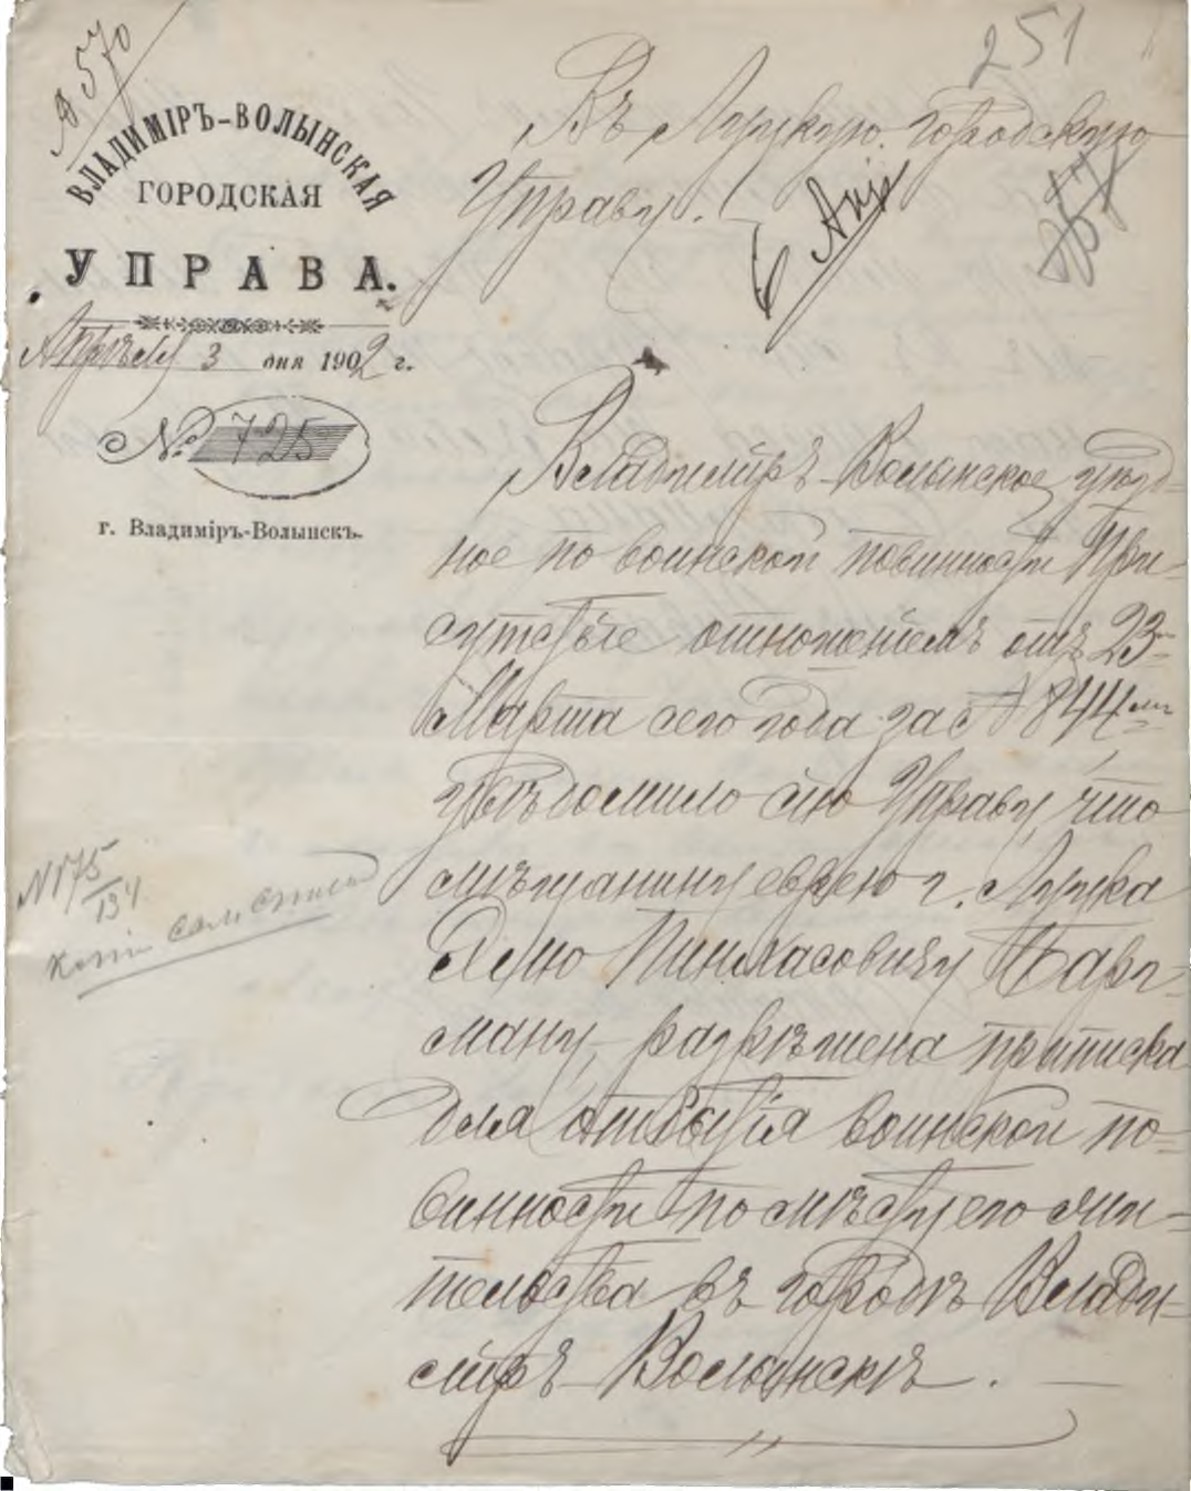 № 570
251
ВЛАДИМІРЪ-ВОЛЫНСКАЯ
ГОРОДСКАЯ
УПРАВА.
Апрѣля 3 дня 1902 г.
№ 725
г. Владиміръ-Волынскъ.
Въ Луцкую городскую
Управу.
6 Апр
Владиміръ-Волынское уѣзд-
ное по воинской повинности При-
сутствіе отношеніемъ отъ 23
Марта сего года за № 844
увѣдомило сію Управу, что
мѣщанину еврею г. Луцка
Пинхасовичу
ману, разрѣшена приписка
для отбытія воинской по-
винности по мѣсту его жи-
тельства въ городѣ Влади-
мірѣ-Волынскѣ.
№ 175